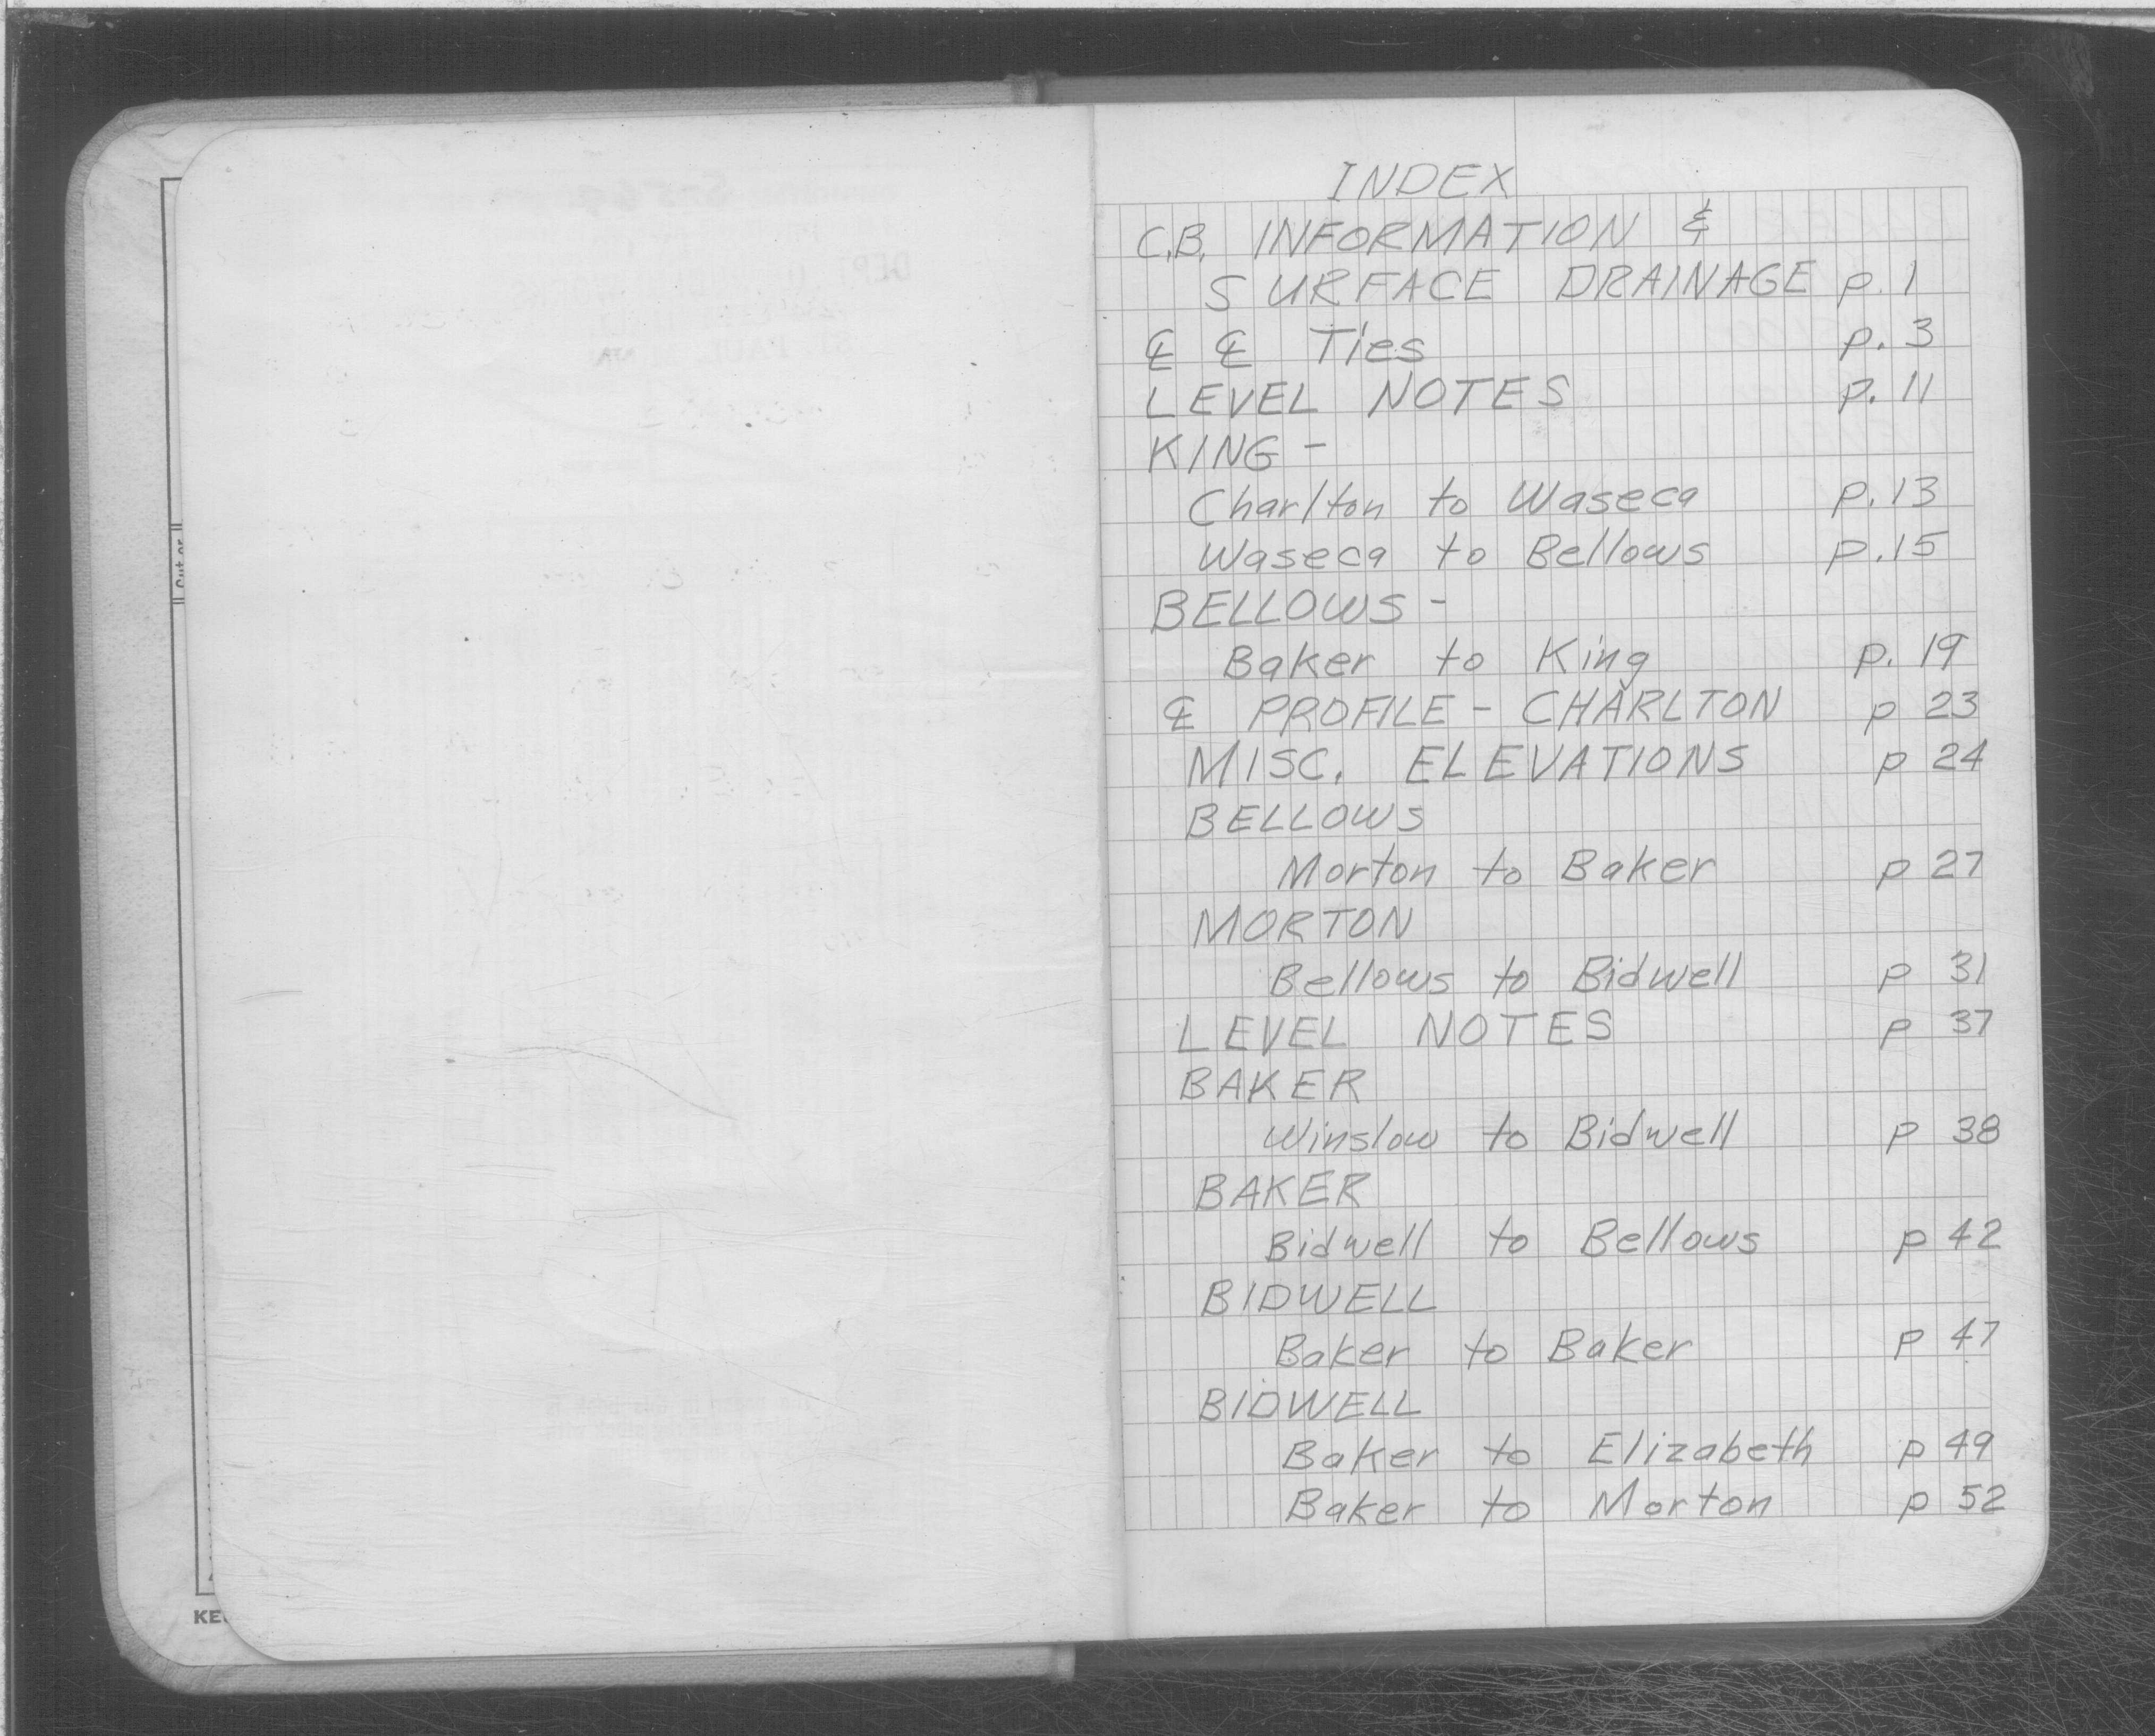 INDEX
C.B. INFORMATION &
SURFACE DRAINAGE p. 1
℄ ℄ Ties p. 3
LEVEL NOTES p. 11
KING -
Charlton to Waseca p. 13
Waseca to Bellows p. 15
BELLOWS -
Baker to King p. 19
℄ PROFILE - CHARLTON p 23
MISC. ELEVATIONS p 24
BELLOWS
Morton to Baker p 27
MORTON
Bellows to Bidwell p 31
LEVEL NOTES p 37
BAKER
Winslow to Bidwell p 38
BAKER
Bidwell to Bellows p 42
BIDWELL
Baker to Baker p 47
BIDWELL
Baker to Elizabeth p 49
Baker to Morton p 52